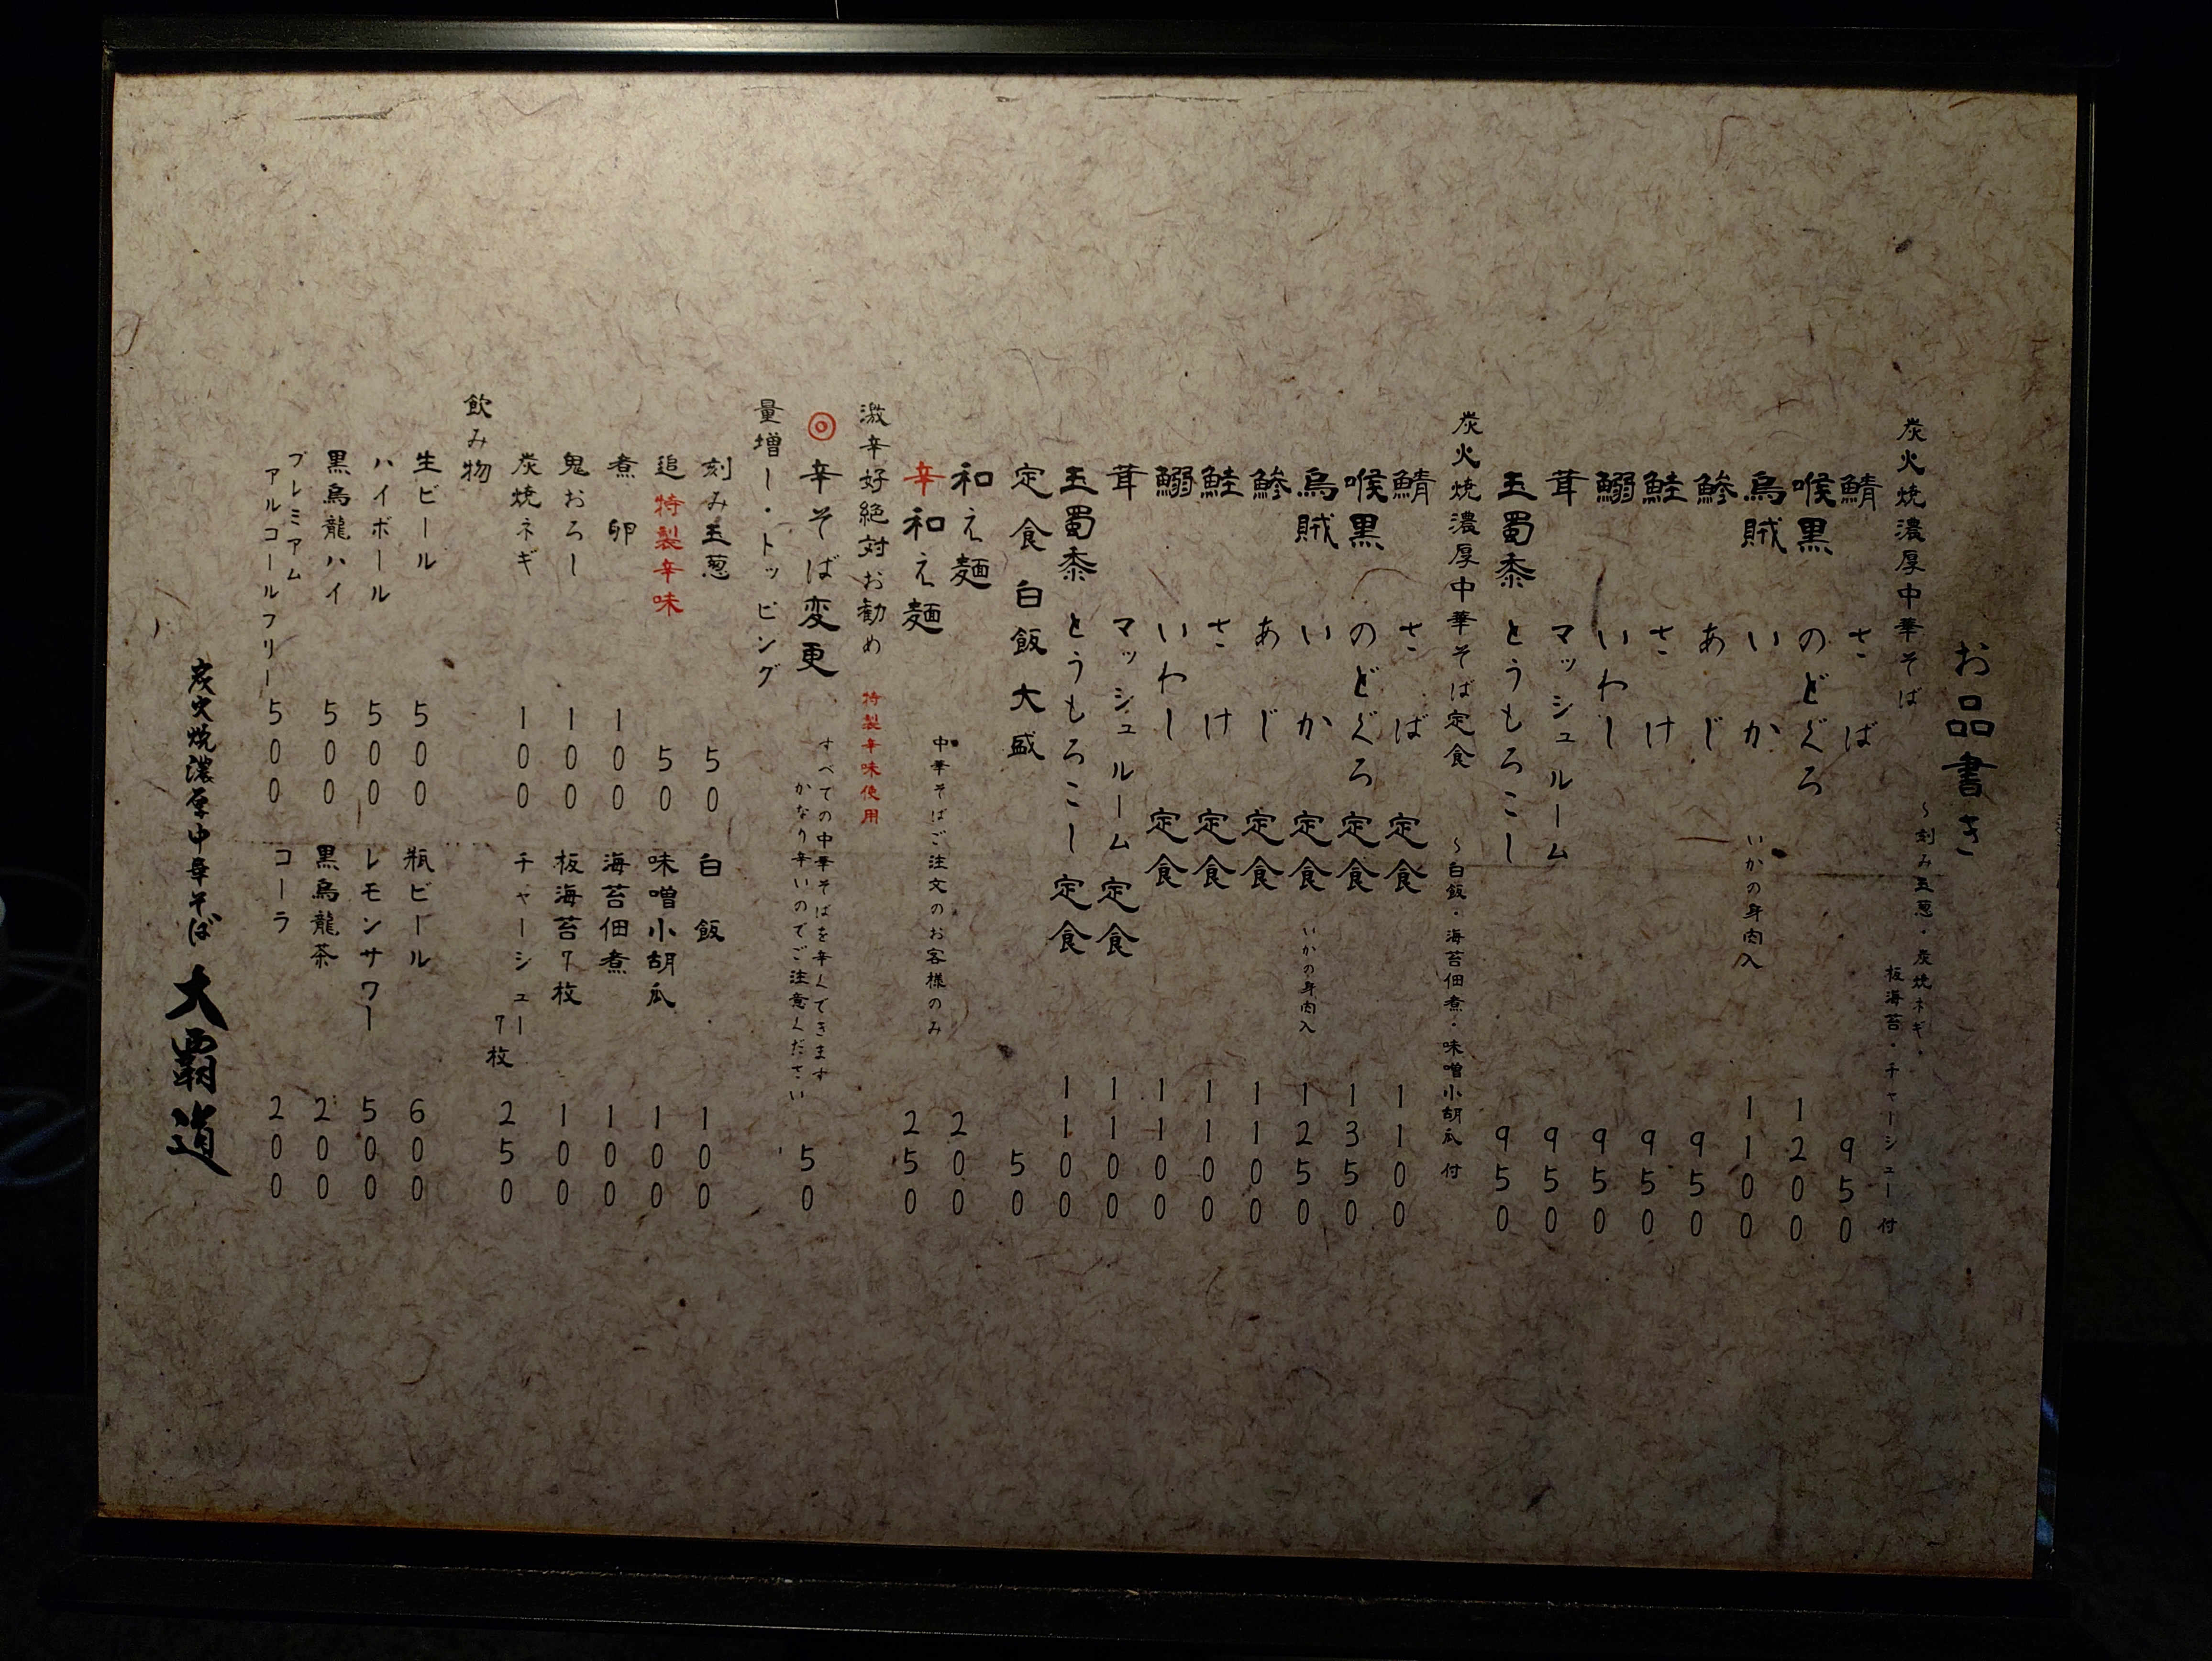 お品書き
炭火焼濃厚中華そば
～刻み玉葱・炭焼ネギ・
板海苔・チャーシュー付
鯖 さば 950
喉黒 のどぐろ 1200
烏賊 いか いかの身肉入 1100
鯵 あじ 950
鮭 さけ 950
鰯 いわし 950
茸 マッシュルーム 950
玉蜀黍 とうもろこし 950
炭火焼濃厚中華そば定食 ～白飯・海苔佃煮・味噌小胡瓜 付
鯖 さば 定食 1100
喉黒 のどぐろ 定食 1350
烏賊 いか 定食 いかの身肉入 1250
鯵 あじ 定食 1100
鮭 さけ 定食 1100
鰯 いわし 定食 1100
茸 マッシュルーム 定食 1100
玉蜀黍 とうもろこし 定食 1100
定食 白飯 大盛 50
和え麺 200
中華そばご注文のお客様のみ
辛和え麺 250
激辛好絶対お勧め 特製辛味使用
◎辛そば変更 50
すべての中華そばを辛くできます
かなり辛いのでご注意ください
量増し・トッピング
刻み玉葱 50 白飯 100
追特製辛味 50 味噌小胡瓜 100
煮卵 100 海苔佃煮 100
鬼おろし 100 板海苔7枚 100
炭焼ネギ 100 チャーシュー7枚 250
飲み物
生ビール 500 瓶ビール 600
ハイボール 500 レモンサワー 500
黒烏龍ハイ 500 黒烏龍茶 200
プレミアム
アルコールフリー 500 コーラ 200
炭火焼濃厚中華そば 大覇道